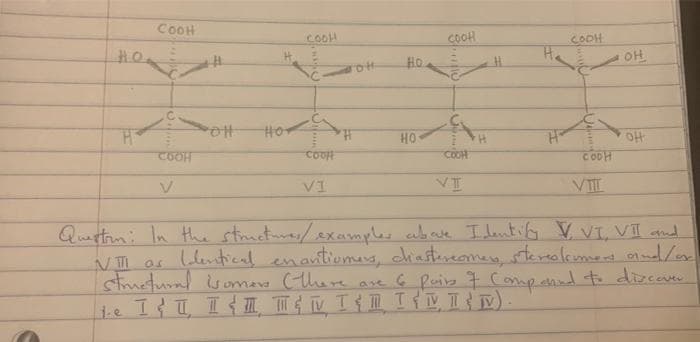 COOH COOH COOH COOH
HO H H OH HO H H OH
C C C C
C C C C
H OH HO H HO H H OH
COOH COOH COOH COOH
V VI VII VIII
Question: In the structures/examples above Identify V, VI, VII and
VIII as Identical enantiomers, diastereomers, stereoisomers and/or
structural isomers (there are 6 pairs of compound to discover
i.e I & II, II & III, III & IV I & III I & IV, II & IV).